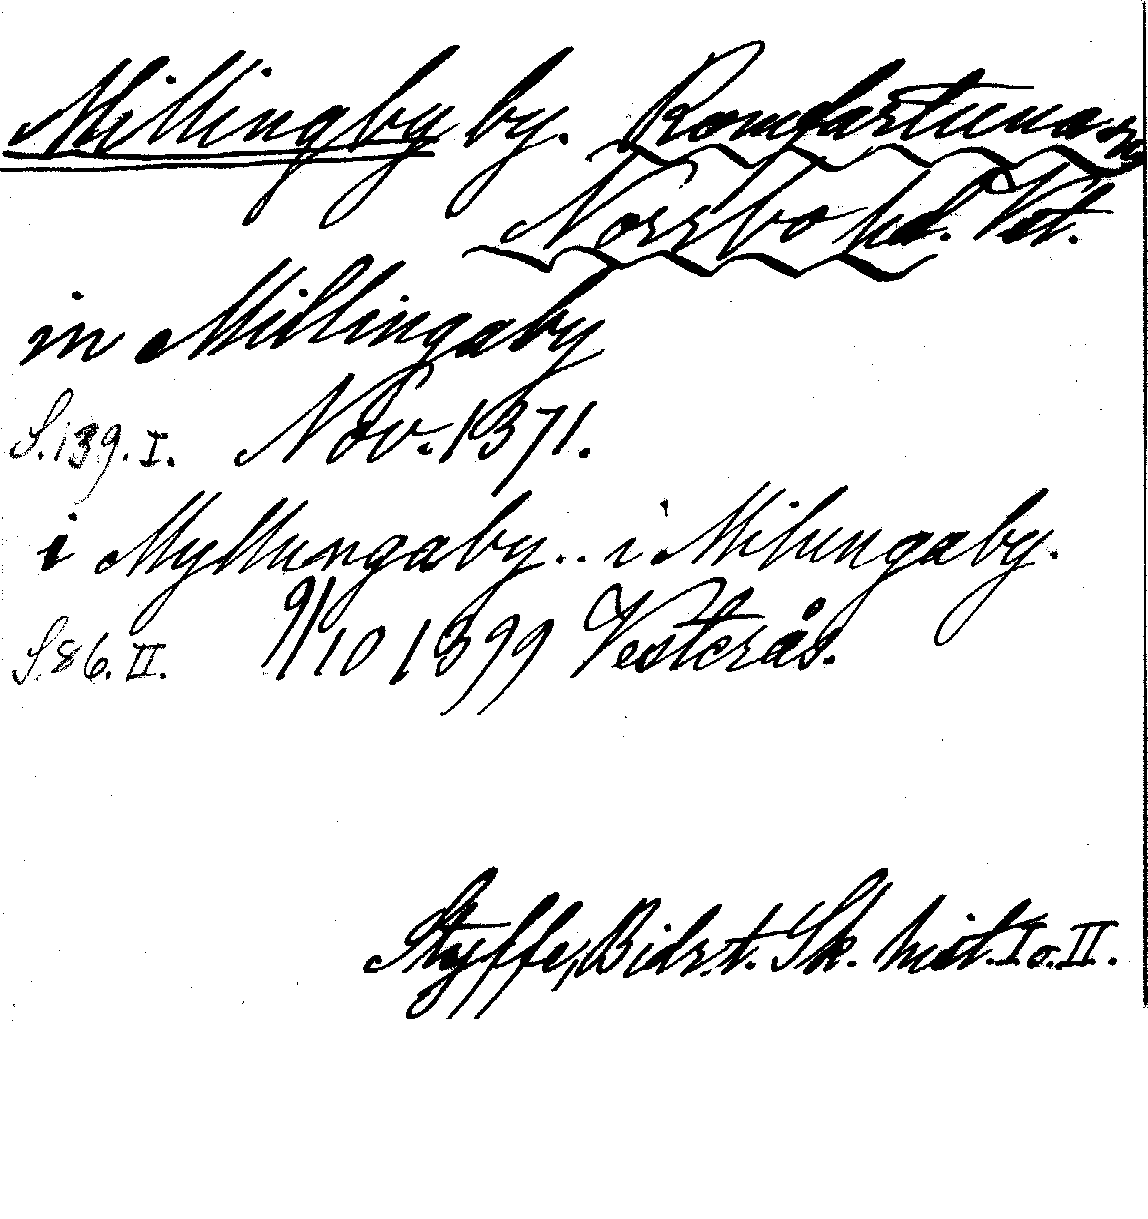 Millingby by. Romfartuna sn
Norrbo hd. Vst.
in Millingaby
S. 139. I. Nov. 1371.
i Myllungaby .. i Milungaby.
S. 86. II. 9/10 1399 Vesterås.
Styffe, Bidr. t. Sk. hist. I o. II.